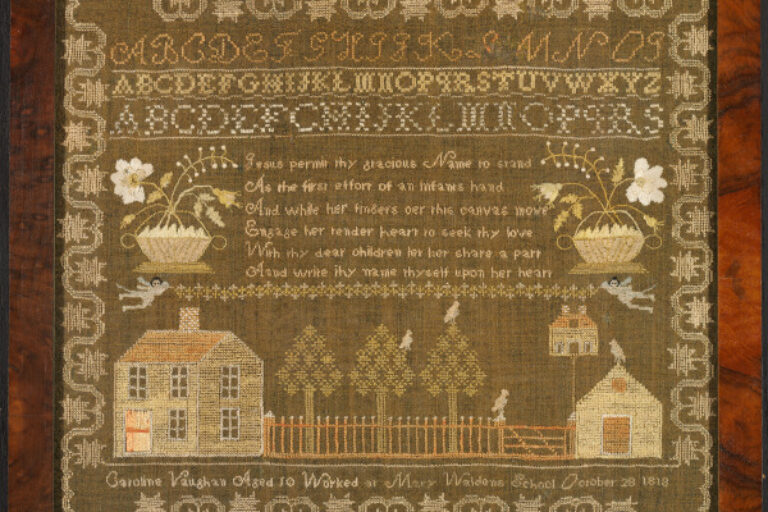 ABCDEFGHIJKLMNOP
ABCDEFGHIJKLMNOPQRSTUVWXYZ
ABCDEFGHIJKLMNOPQRS
Jesus permit thy gracious Name to stand
As the first effort of an infants hand
And while her fingers oer this canvas move
Engage her tender heart to seek thy love
With thy dear children let her share a part
And write thy name thyself upon her heart
Caroline Vaughan Aged 10 Worked at Mary Waldens School October 28 1818